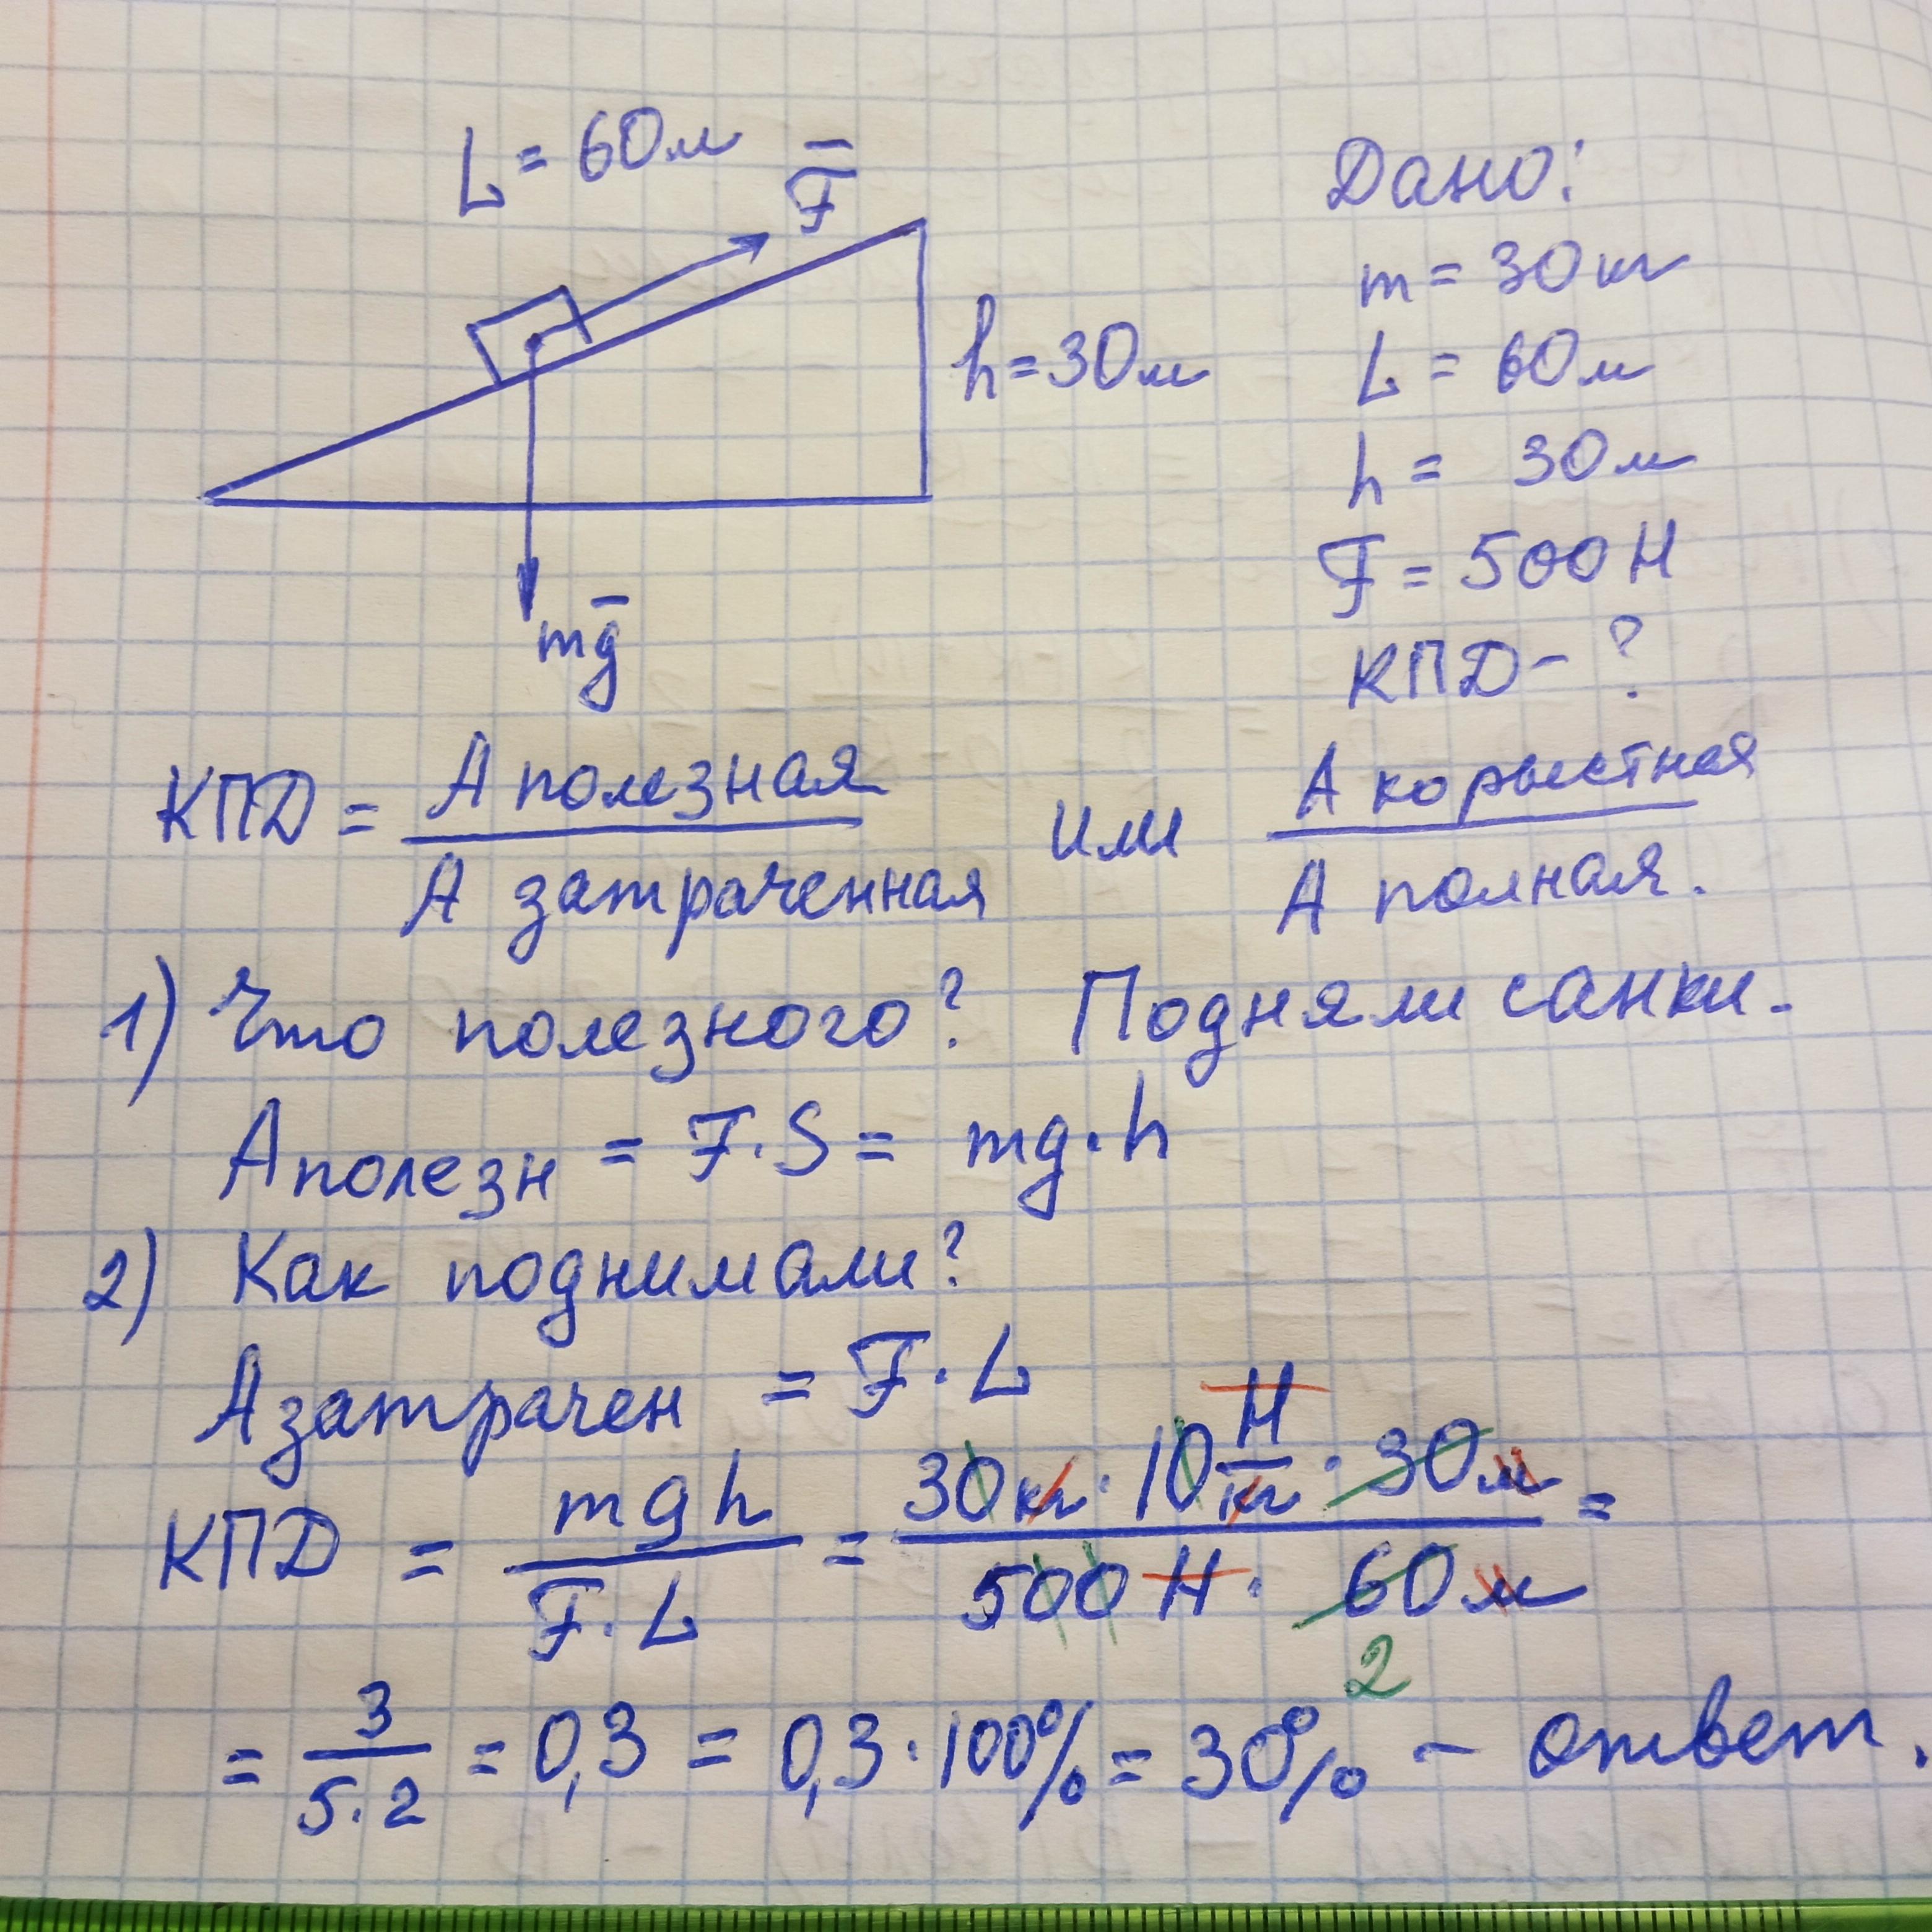 L = 60м
F̅
h = 30м
mg̅
Дано:
m = 30 кг
L = 60м
h = 30м
F = 500 Н
КПД - ?
КПД = А полезная / А затраченная или А корыстная / А полная.
1) Что полезного? Подняли санки.
Аполезн = F · S = mg · h
2) Как поднимали?
Азатрачен = F · L
КПД = mgh / F · L = 30кг · 10 Н/кг · 30м / 500 Н · 60м =
2
= 3 / 5·2 = 0,3 = 0,3 · 100% = 30% - ответ.